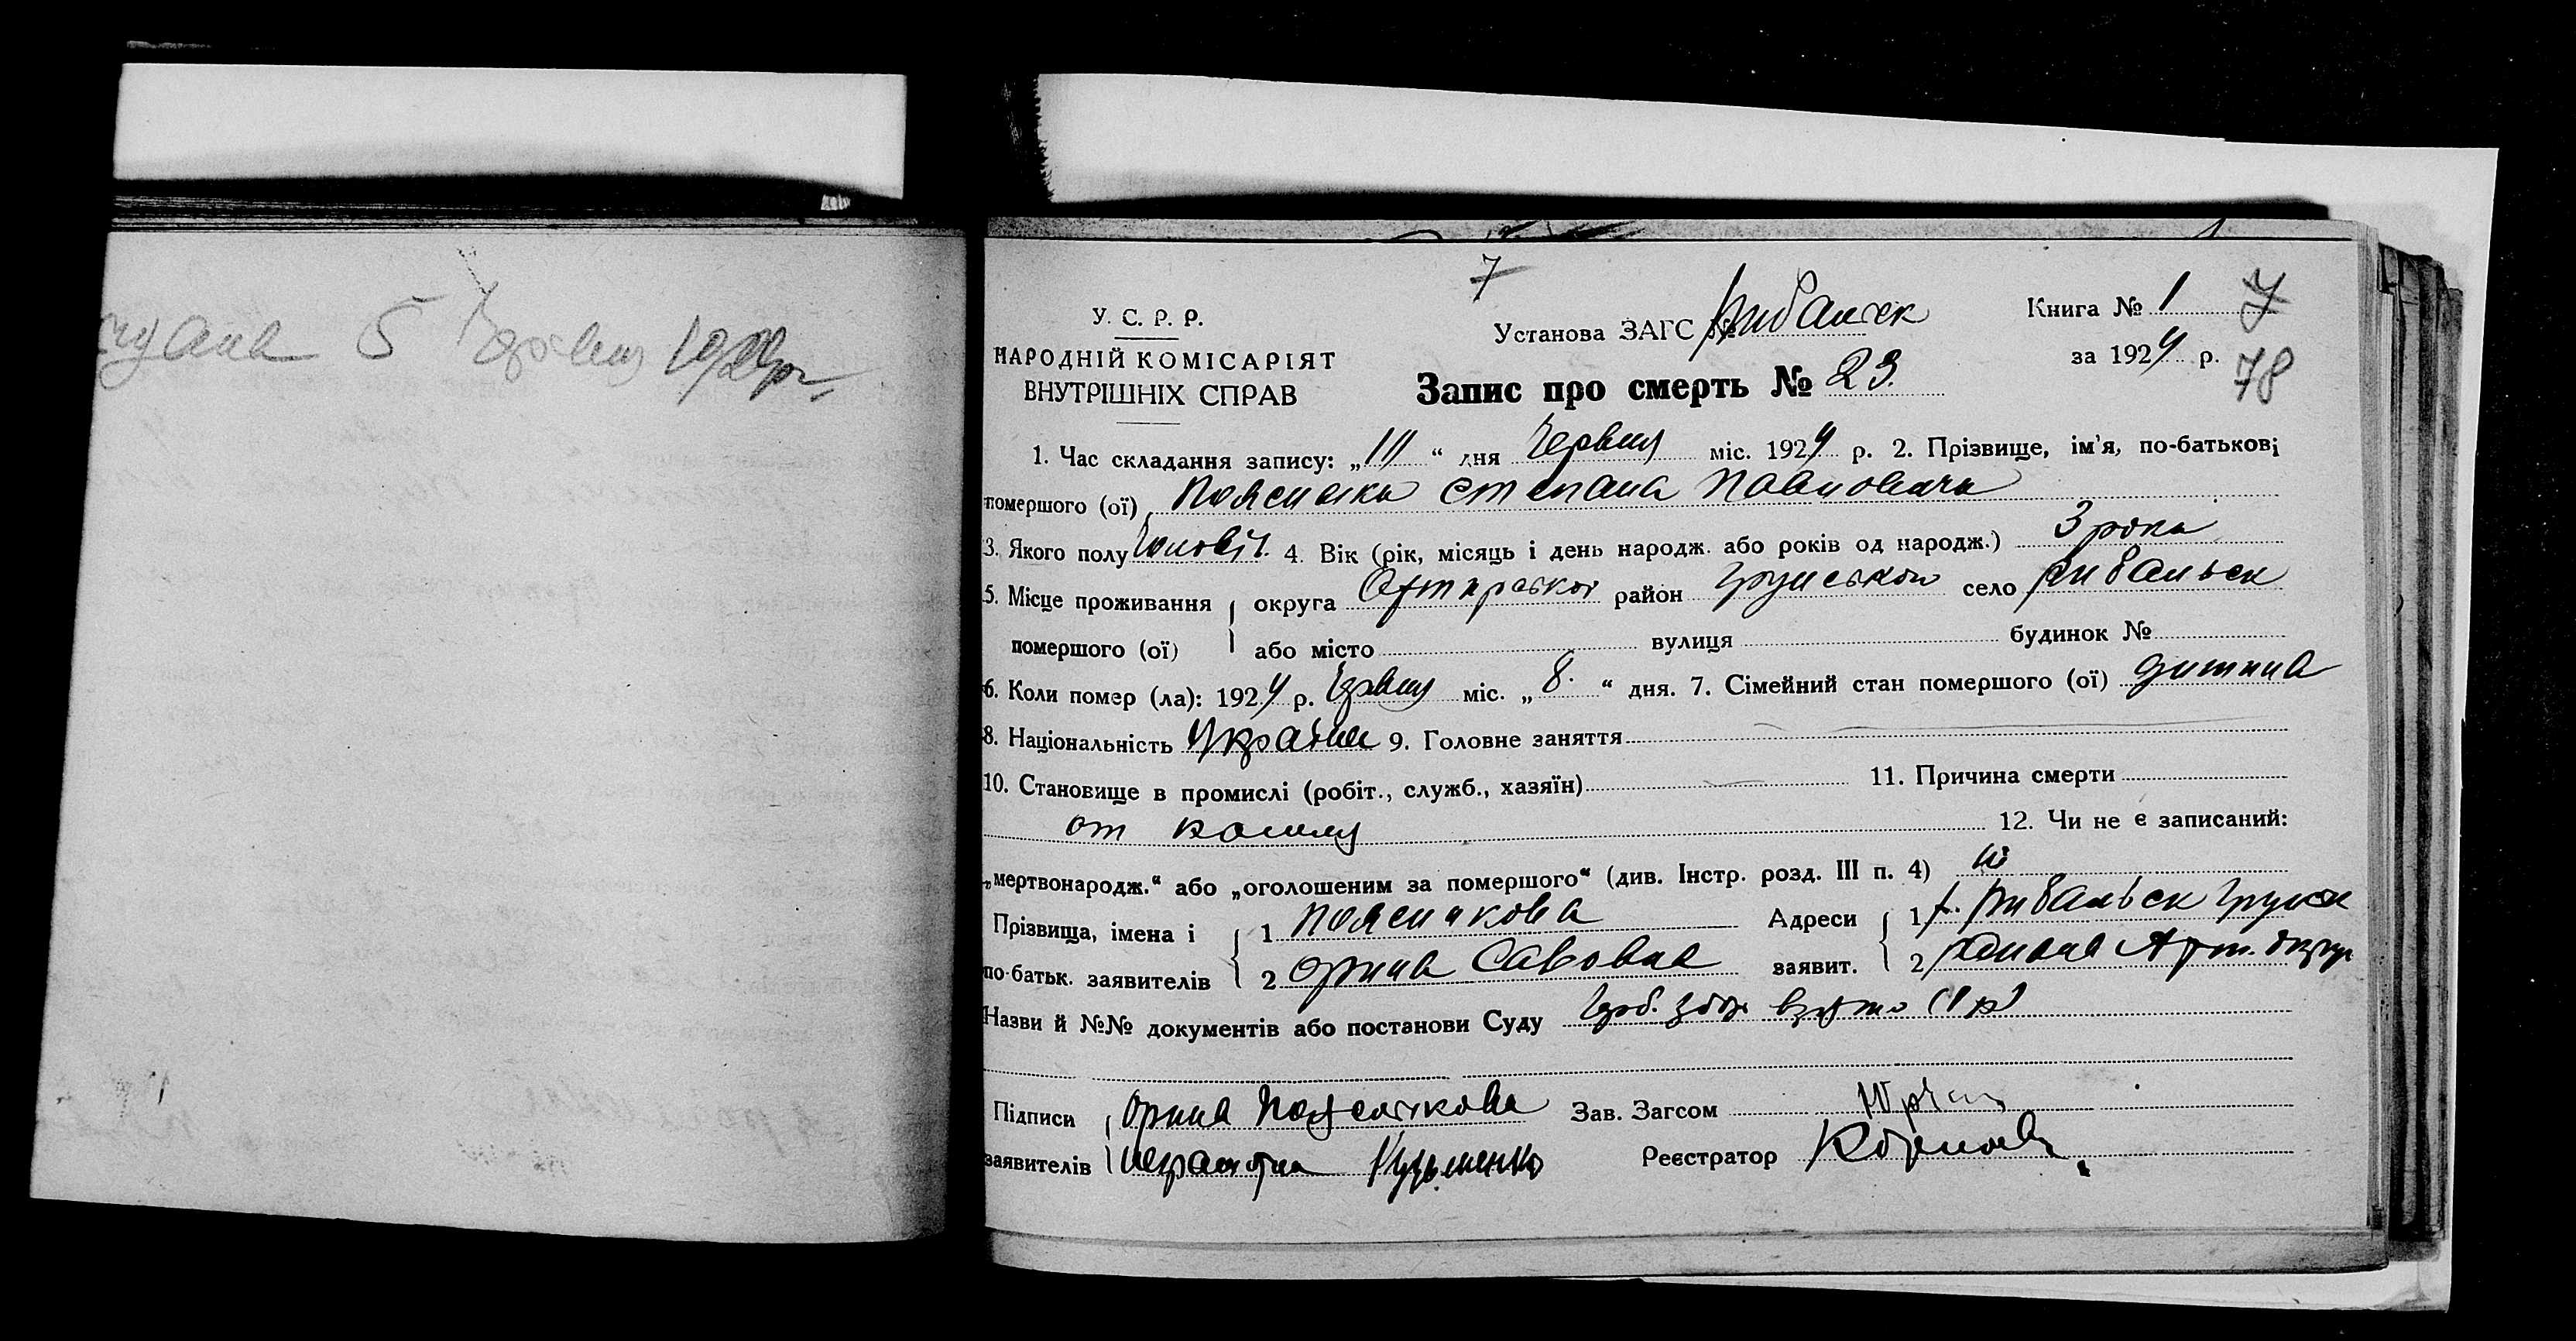 5 Червня 1924 р
7
У. С. Р. Р.
НАРОДНІЙ КОМІСАРІЯТ
ВНУТРІШНІХ СПРАВ
Установа ЗАГС № Рибальск
Книга № 1
7
за 1924 р.
78
Запис про смерть № 23.
1. Час складання запису: „ “ дня Червня міс. 1924 р. 2. Прізвище, ім'я, по-батькові
помершого (ої) Степана Павловича
3. Якого полу Чоловіч. 4. Вік (рік, місяць і день народж. або років од народж.) 3 роки
5. Місце проживання округа Охтирськой район Грунськой село Рибальск
помершого (ої) або місто вулиця будинок №
6. Коли помер (ла): 1924 р. Червня міс. „8.“ дня. 7. Сімейний стан помершого (ої) дитина
8. Національність Україн 9. Головне заняття
10. Становище в промислі (робіт., служб., хазяїн) 11. Причина смерти
от кашлю
12. Чи не є записаний:
„мертвонародж.“ або „оголошеним за помершого“ (див. Інстр. розд. III п. 4) ні
Прізвища, імена і 1 Поясникова Адреси 1 Рибальск Грунск
по-батьк. заявителів 2 Орина Савовна заявит. 2 району Охт. округ
Назви й №№ документів або постанови Суду Герб. збор взято (1 р)
Підписи Орина Зав. Загсом
заявителів неграмотна Кузьменко Реєстратор